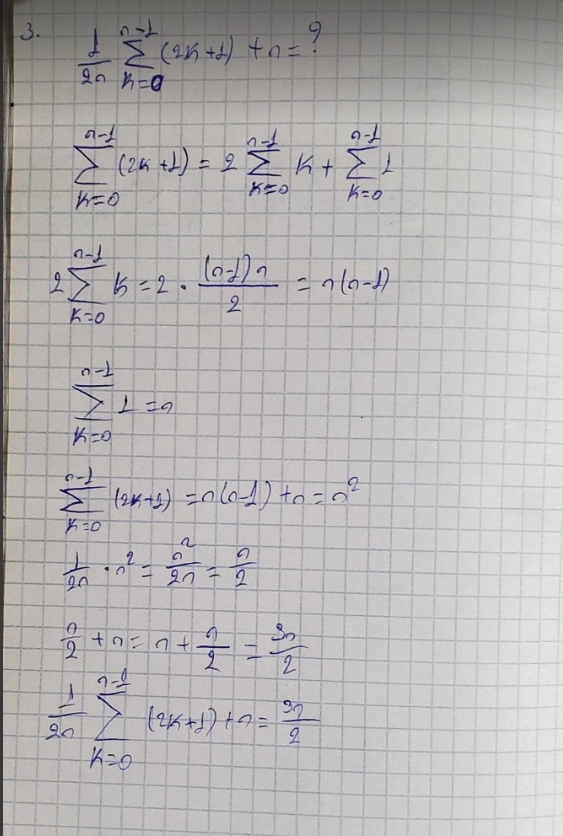 3.
1/2n ∑_{k=0}^{n-1} (2k+1) + n = ?
∑_{k=0}^{n-1} (2k+1) = 2 ∑_{k=0}^{n-1} k + ∑_{k=0}^{n-1} 1
2 ∑_{k=0}^{n-1} k = 2 · (n-1)n/2 = n(n-1)
∑_{k=0}^{n-1} 1 = n
∑_{k=0}^{n-1} (2k+1) = n(n-1) + n = n²
1/2n · n² = n²/2n = n/2
n/2 + n = n + n/2 = 3n/2
1/2n ∑_{k=0}^{n-1} (2k+1) + n = 3n/2